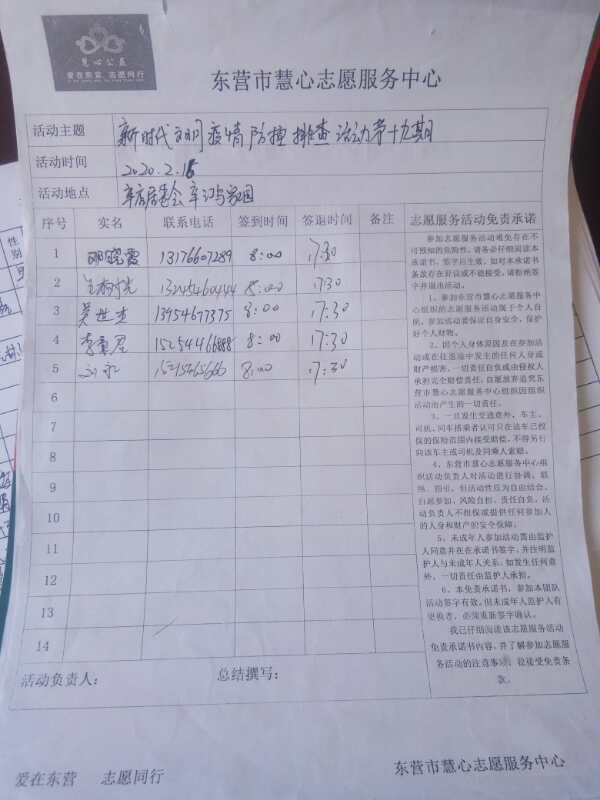 慧心公益
爱在东营 志愿同行
东营市慧心志愿服务中心
活动主题 新时代文明疫情防控排查活动第十九期
活动时间 2020.2.15
活动地点
序号 实名 联系电话 签到时间 签退时间 备注 志愿服务活动免责承诺
1 邓晓霞 13176607289 8:00 17:30
2 8:00 17:30
3 吴世杰 13954677375 8:00 17:30
4 8:00 17:30
5 8:00 17:30
6
7
8
9
10
11
12
13
14
参加志愿服务活动难免存在不
可预知的危险性，请务必仔细阅读本
承诺书，签字后生效，如对本承诺书
条款存在异议或不能接受，请拒绝签
字并退出活动。
1、参加东营市慧心志愿服务中
心组织的志愿服务活动属于个人自
愿，参加活动要保证自身安全，保护
好个人财物。
2、因个人身体原因及在参加活
动或在往返途中发生的任何人身或
财产损害，一切责任自负或由侵权人
承担完全赔偿责任，自愿放弃追究东
营市慧心志愿服务中心组织因组织
活动而产生的一切责任。
3、一旦发生交通意外，车主、
司机、同车搭乘者认可只在该车已投
保的保险范围内接受赔偿，不得另行
向该车主或司机及同乘人索赔。
4、东营市慧心志愿服务中心组
织活动负责人对活动进行协调、联
络、指引，但活动性质为自由结合、
自愿参加、风险自担、责任自负，活
动负责人不担保或提供任何参加人
的人身和财产的安全保障；
5、未成年人参加活动需由监护
人同意并在在承诺书签字，并注明监
护人与未成年人关系，如发生任何意
外，一切责任由监护人承担。
6、本免责承诺书，参加本团队
活动签字有效，但未成年人监护人有
更换者，必须重新签字确认。
我已仔细阅读该志愿服务活动
免责承诺书内容，并了解参加志愿服
务活动的注意事项，自愿接受免责条
款。
活动负责人： 总结撰写：
爱在东营 志愿同行 东营市慧心志愿服务中心